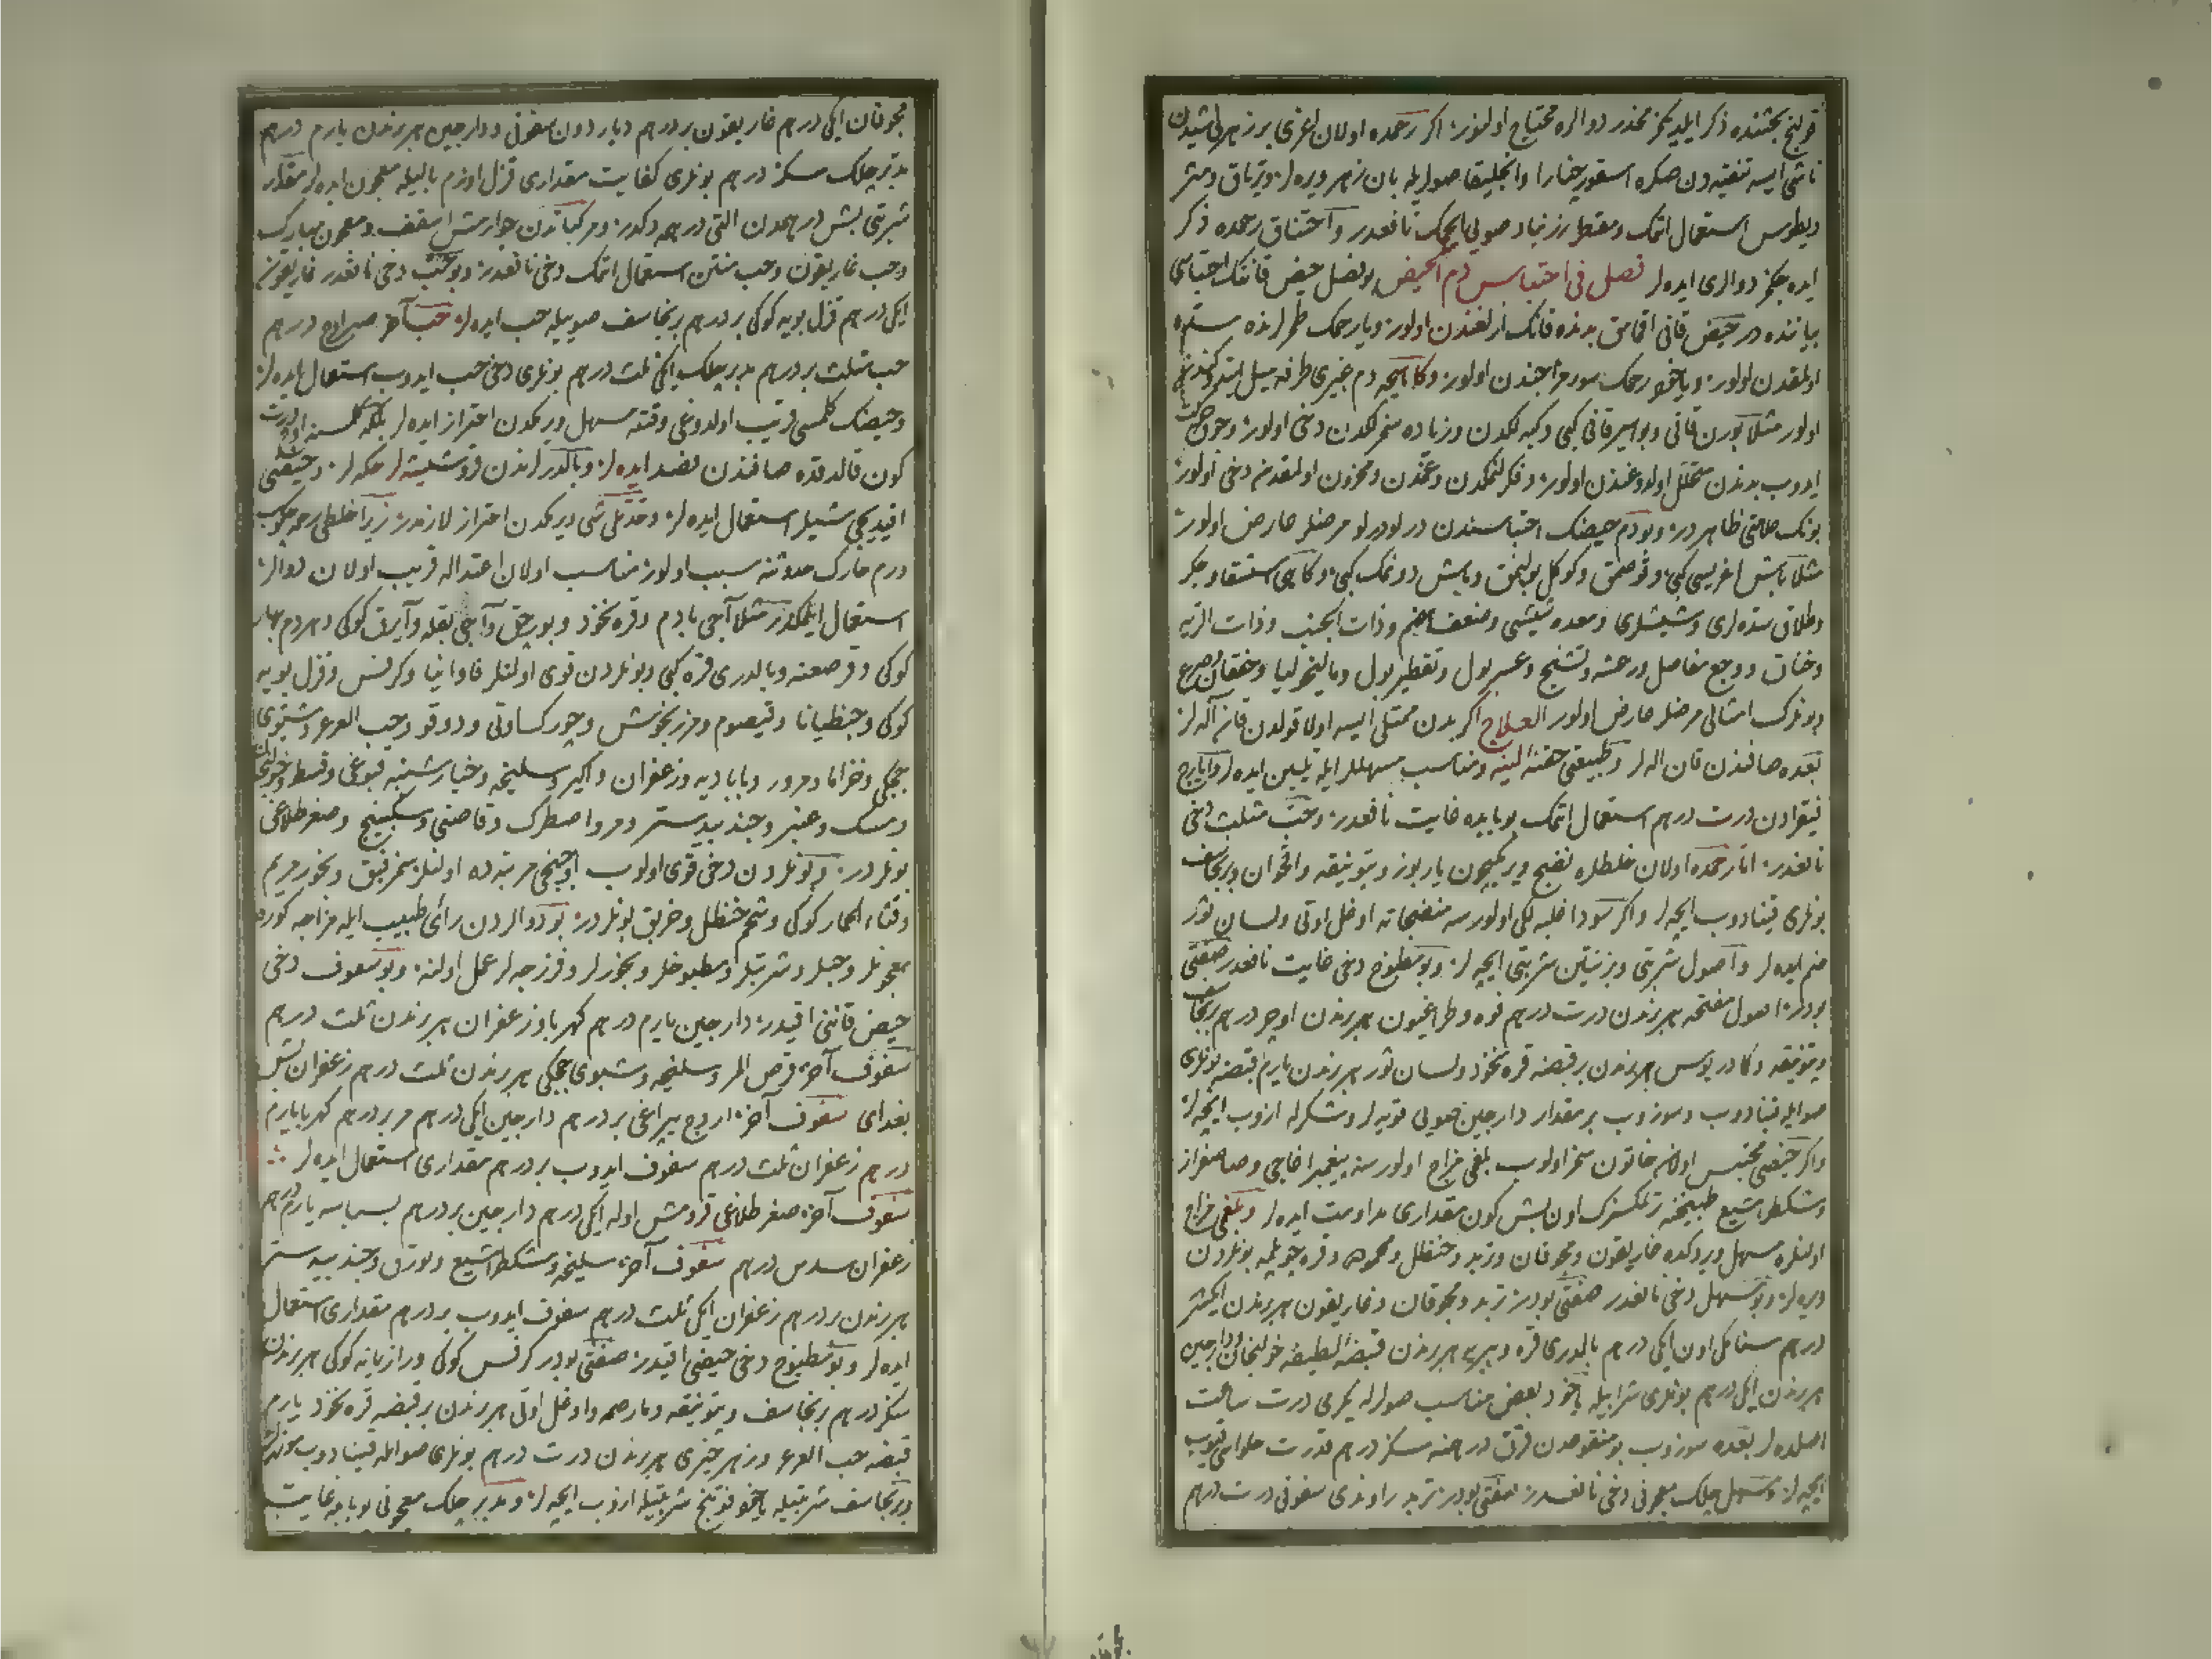 قولنج بحثنده ذكر ايلديكمز مخدر دوالره محتاج اولنور اكر رحمده اولان اغرى بر زهرلى شيدن
ناشى ايسه تنقيه دن صكره اسقورجنارا وانجليقا صويله بان زهر ويره لر وترياق ومثر
ديطوس استعمال اتمك ومقطر زرنباد صوين ايچمك نافعدر واختناق رحمده ذكر
ايده جكمز دوالرى ايده لر فصل فى احتباس دم الحيض بو فصل حيض قاننك احتباسى
بياننده در حيض قانى اقمامق بدنده قانك ازلغندن اولور وياخود رحمك طمرلرنده سده
اولمقدن اولور وياخود رحمك سوء مزاجندن اولور وكاهيجه دم غيرى طرفه ميل ايتدوكندن
اولور مثلا بورن قانى وبواسير قانى كبى وكبه لكدن وزياده سمزلكدن دخى اولور وچوق حركت
ايدوب بدندن تحلل اولدوغندن اولور وفكرلنمكدن وغمدن ومحزون اولمقدن دخى اولور
بونك علامتى ظاهردر وبو دم حيضك احتباسندن درلو درلو مرضلر عارض اولور
مثلا باش اغريسى كبى وقوصمق وكوكل بولنمق وباش دونمك كبى وكاهى استسقا وجكر
وطلاق سده لرى وشيشلرى ومعده شيشى وضعف هضم وذات الجنب وذات الريه
وخناق ووجع مفاصل ورعشه وتشنج وعسر بول وتقطير بول وماليخوليا وخفقان وصرع
وبونلرك امثالى مرضلر عارض اولور العلاج اكر بدن ممتلى ايسه اولا قولدن قان آله لر
بعده صافندن قان اله لر وطبيعتى حقنه لينه ومناسب مسهللر ايله تليين ايده لر وايارج
فيقرادن درت درهم استعمال اتمك بو بابده غايت نافعدر وحب مثلث دخى
نافعدر اما رحمده اولان خلطلره نضج ويرمكيچون ياربوز وپتونيقه واقحوان وبرنجاسف
بونلرى قينادوب ايچه لر واكر سودا غلبه لكى اولورسه منضجاته اوغل اوتى ولسان ثور
ضم ايده لر واصول شربتى وبزنتين شربتى ايچه لر وبو مطبوخ دخى غايت نافعدر صفتى
بودر اصول مفتحه هربرندن درت درهم فوه وطراغيون هربرندن اوچر درهم برنجاسف
وپتونيقه وكمادريوس هربرندن بر قبضه قره نخود ولسان ثور هربرندن يارم قبضه بونلرى
صوايله قينادوب وسوزوب بر مقدار دارچين صويى قويه لر وشكرله ازوب ايچه لر
واكر حيضى محتبس اولان خاتون سمز اولوب بلغمى مزاج اولورسه پيغمبر اغاجى وصاصفراز
ومشكطرامشيع طبيخنه ترلمكسزك اون بش كون مقدارى مداومت ايده لر وبلغمى مزاج
اولنلره مسهل ويردكده غاريقون ومجوقان وتربد وحنظل ومحموده وقره چوپلمه بونلردن
ويره لر وبو مسهل دخى نافعدر صفتى بودر تربد ومجوقان وغاريقون هربرندن ايكيشر
درهم سنامكى اون ايكى درهم بالدرى قره وبرير هربرندن قبضه لطيفه خولنجان ودارچين
هربرندن ايكى درهم بونلرى شرابيله ياخود بعض مناسب صولرله يكرمى درت ساعت
اصلده لر بعده سوزوب بو منقوعدن قرق درهمنه سكز درهم قدرت حلواسى قيوب
ايچه لر ومسهل چلك معجونى دخى نافعدر صفتى بودر تربد راوندى سفوفى درت درهم
مجوقان ايكى درهم غاريقون بر درهم دياردون سفوفى ودارچين هربرندن يارم درهم
مدبر چلك سكز درهم بونلرى كفايت مقدارى قزل اوزم باليله معجون ايده لر مقدار
شربتى بش درهمدن التى درهمه دكدر ومركباتدن جوارش اسقف ومعجون مبارك
وحب غاريقون وحب منتن استعمال اتمك دخى نافعدر وبو حب دخى نافعدر غاريقون
ايكى درهم قزل بويه كوكى بر درهم برنجاسف صوييله حب ايده لر حب آخر درهم
حب مثلث بر درهم مدبر چلك ايكى ثلث درهم بونلرى دخى حب ايدوب استعمال ايده لر
وحيضك كلمسى قريب اولدوغى وقتده مسهل ويرمكدن احتراز ايده لر بلكه كلمسنه اوچ درت
كون قالدقده صافندن فصد ايده لر وبالدرلرندن قرو شيشه لر چكه لر وحيضى
اقيديجى شيلر استعمال ايده لر وحدتلى شى ويرمكدن احتراز لازمدر زيرا خلطى رحمه چكوب
ورم حارك حدوثنه سبب اولور مناسب اولان اعتداله قريب اولان دوالر
استعمال ايتمكدر مثلا آجى بادم وقره نخود وبورچق وآجى بقله وآيرق كوكى وهردم بهار
كوكى وقرصعنه وبالدرى قره كبى وبونلردن قوى اولنلر فاوانيا وكرفس وقزل بويه
كوكى وجنطيانا وقيصوم ومرزنجوش وچوركساوتى ودوقو وحب العرعر وشبوى
چچكى وخزاما ومرور وبابادیه وزعفران واكير وسليخه وخيارشنبه قبوغى وقسط وخولنجان
ومسك وعنبر وجندبيدستر ومر واصطرك وقاصنى وسكبينج وصغر طلاغى
بونلردر وبونلردن دخى قوى اولوب اوچنجى مرتبه ده اولنلر سخرنبق وبخور مريم
وقثاء الحمار كوكى وشحم حنظل وخربق بونلردر بو دوالردن رأى طبيب ايله مزاجه كوره
معجونلر وحبلر وشربتلر ومطبوخلر وبخورلر وفرزجه لر عمل اولنه وبو سفوف دخى
حيض قاننى اقيدر دارچين يارم درهم كهربا وزعفران هربرندن ثلث درهم
سفوف آخر قرص المر وسليخه وشبوى چچكى هربرندن ثلث درهم زعفران بش
بغداى سفوف آخر اردج يپراغى بر درهم دارچين ايكى درهم مر بر درهم كهربا يارم
درهم زعفران ثلث درهم سفوف ايدوب بر درهم مقدارى استعمال ايده لر
سفوف آخر صغر طلاغى قرومش اوله ايكى درهم دارچين بر درهم بسباسه يارم درهم
زعفران سدس درهم سفوف آخر سليخه ومشكطرامشيع ولوزن وجندبيدستر
هربرندن بر درهم زعفران ايكى ثلث درهم سفوف ايدوب بر درهم مقدارى استعمال
ايده لر وبو مطبوخ دخى حيضى اقيدر صفتى بودر كرفس كوكى ورازيانه كوكى هربرندن
سكز درهم برنجاسف وپتونيقه ومارصمه واوغل اوتى هربرندن بر قبضه قره نخود يارم
قبضه حب العرعر وزهر خيرى هربرندن درت درهم بونلرى صوايله قينادوب سوزه لر
وبرنجاسف شربتيله ياخود فوتنج شربتيله ازوب ايچه لر ومدبر چلك معجونى بو بابده غايت